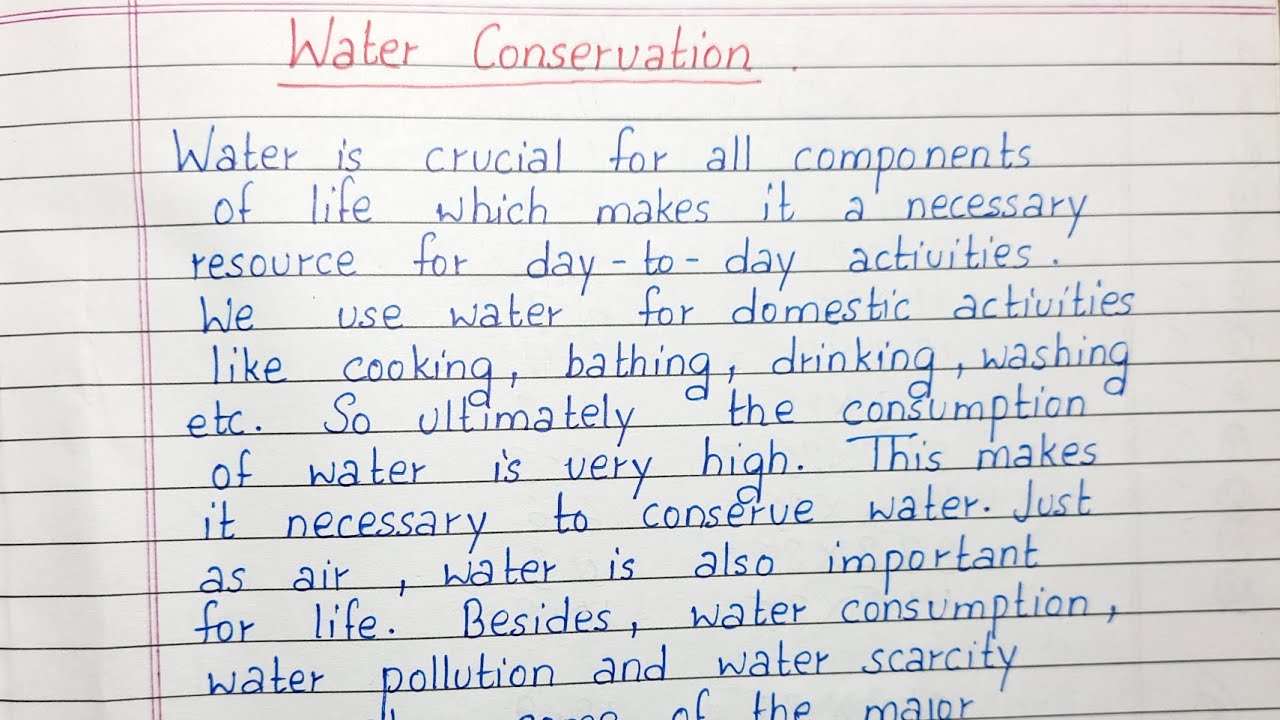 Water Conservation.
Water is crucial for all components
of life which makes it a necessary
resource for day-to-day activities.
We use water for domestic activities
like cooking, bathing, drinking, washing
etc. So ultimately the consumption
of water is very high. This makes
it necessary to conserve water. Just
as air, water is also important
for life. Besides, water consumption,
water pollution and water scarcity
of the major